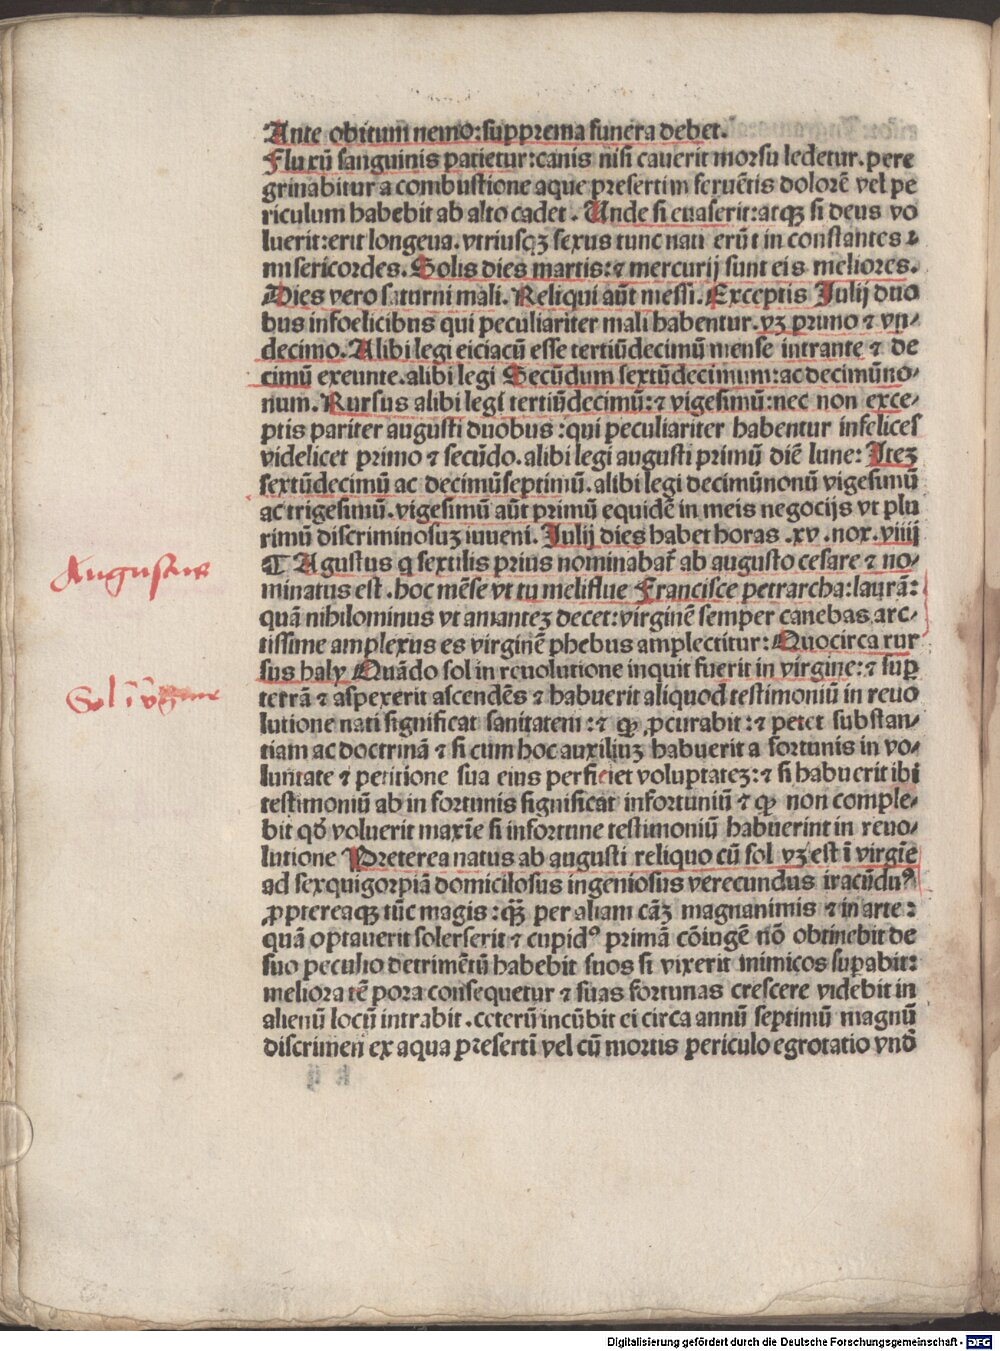 Ante obitum nemo: supprema funera debet.
Fluxū sanguinis patietur: canis nisi cauerit morsu ledetur. pere
grinabitur a combustione aque presertim feruētis dolorē vel pe
riculum habebit ab alto cadet. Unde si euaserit: atqꝫ si deus vo
luerit: erit longeua. vtriusqꝫ sexus tunc nati erūt in constantes ⁊
misericordes. Solis dies martis: ⁊ mercurij sunt eis meliores.
Dies vero saturni mali. Reliqui aūt messi. Exceptis Julij duo
bus infoelicibus qui peculiariter mali habentur. vꝫ primo ⁊ vn⸗
decimo. Alibi legi eiciacū esse tertiūdecimū mense intrante ⁊ de
cimū exeunte. alibi legi Secūdum sextūdecimum: ac decimūno⸗
num. Rursus alibi legi tertiūdecimū: ⁊ vigesimū: nec non exce⸗
ptis pariter augusti duobus: qui peculiariter habentur infelices
videlicet primo ⁊ secūdo. alibi legi augusti primū diē lune: Iteꝫ
sextūdecimū ac decimūseptimū. alibi legi decimūnonū vigesimū
ac trigesimū. vigesimū aūt primū equidē in meis negocijs vt plu
rimū discriminosuꝫ inueni. Julij dies habet horas .xv. nox. viiij
¶ Agustus q sextilis prius nominabat̄ ab augusto cesare ⁊ no⸗
minatus est. hoc mēse vt tu meliflue Francisce petrarcha: laurā:
quā nihilominus vt amanteꝫ decet: virginē semper canebas arc⸗
tissime amplexus es virginē phebus amplectitur: Quocirca rur
sus haly Quādo sol in reuolutione inquit fuerit in virgine: ⁊ sup̄
terrā ⁊ aspexerit ascendēs ⁊ habuerit aliquod testimoniū in reuo
lutione nati significat sanitatem: ⁊ ꝙ ꝓcurabit: ⁊ petet substan⸗
tiam ac doctrinā ⁊ si cum hoc auxiliuꝫ habuerit a fortunis in vo⸗
luntate ⁊ petitione sua eius perficiet voluptateꝫ: ⁊ si habuerit ibi
testimoniū ab in fortunis significat infortuniū ⁊ ꝙ non comple⸗
bit qđ voluerit maxīe si infortune testimoniū habuerint in reuo⸗
lutione Preterea natus ab augusti reliquo cū sol vꝫ est ī virgīe
ad sexquigorpiā domicilosus ingeniosus verecundus iracūdꝰ
ꝓptereaqꝫ tūc magis: qꝫ̄ per aliam cāꝫ magnanimis ⁊ in arte:
quā optauerit solerserit ⁊ cupidꝰ primā cōiugē nō obtinebit de
suo peculio detrimētū habebit suos si vixerit inimicos supabit:
meliora tē pora consequetur ⁊ suas fortunas crescere videbit in
alienū locū intrabit. ceterū incūbit ei circa annū septimū magnū
discrimen ex aqua presertī vel cū mortis periculo egrotatio vnđ
Augustus
Sol ī v̄gine
Digitalisierung gefördert durch die Deutsche Forschungsgemeinschaft - DFG